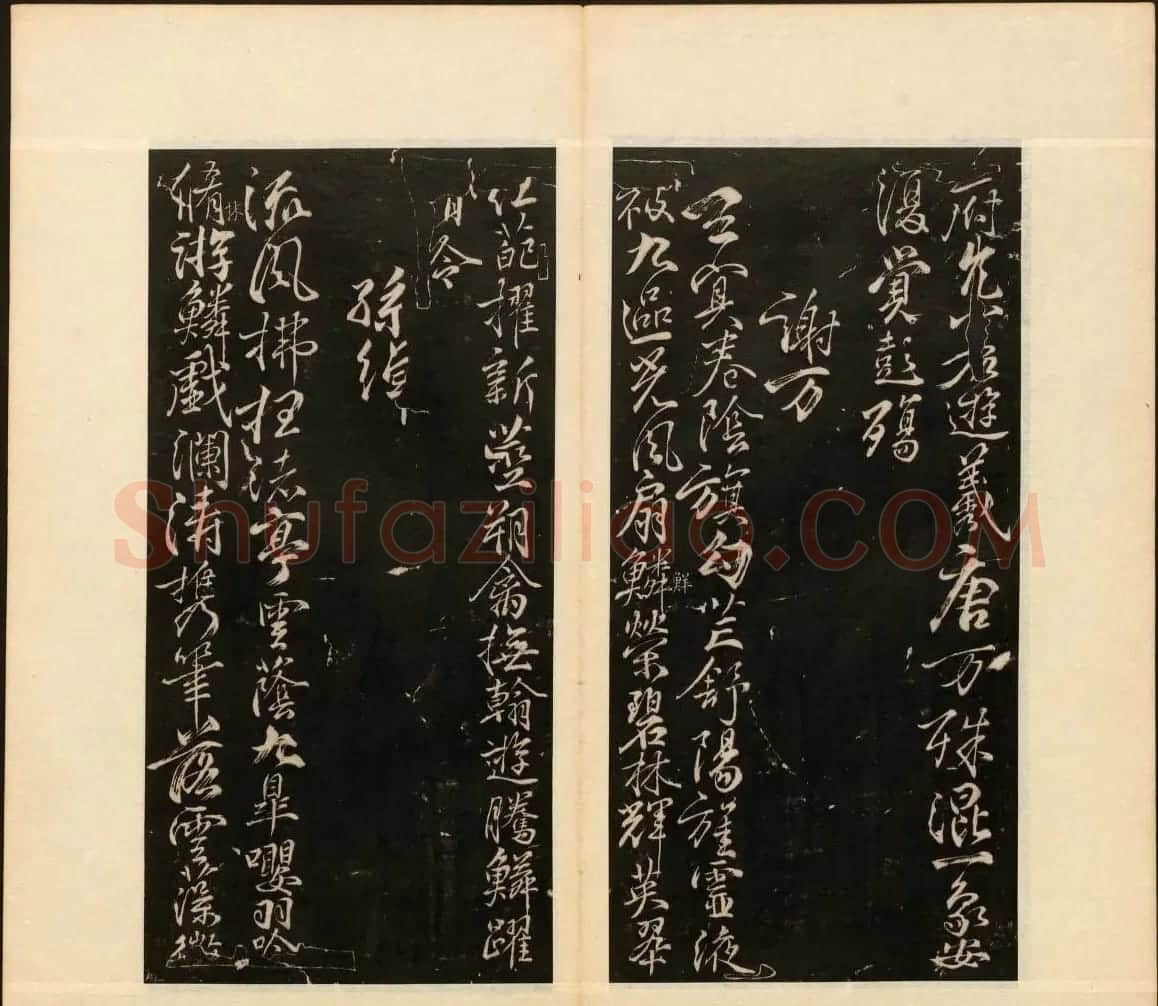 府兀若遊羲唐万殊混一象安
復覚彭殤
謝万
玄冥卷陰旗句芒舒陽旌靈液
被九區光風扇鱗鮮榮碧林輝英翠
紅葩擢新莖翔禽撫翰遊騰鱗躍
清泠
孫綽
流風拂枉渚亭雲蔭九皋嚶羽吟
脩林游鱗戲瀾濤携筆落雲藻微
Shufaziliao.COM